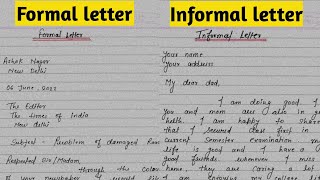 Formal letter
Formal Letter
Ashok Nagar
New Delhi
06 June, 2022
The Editor
The Times of India
New delhi
Subject - Problem of damaged Road
Respected Sir/Madam,
Through the
of your
Informal letter
Informal Letter
Your name
Your address
My dear dad,
I am doing good. I
You and mom are also in good
health. I am happy to
that I secured class first in
current Semester Examination
life is good and I have a
good friends. whenever I miss
home, they are caring a lot
I am enjoying my college